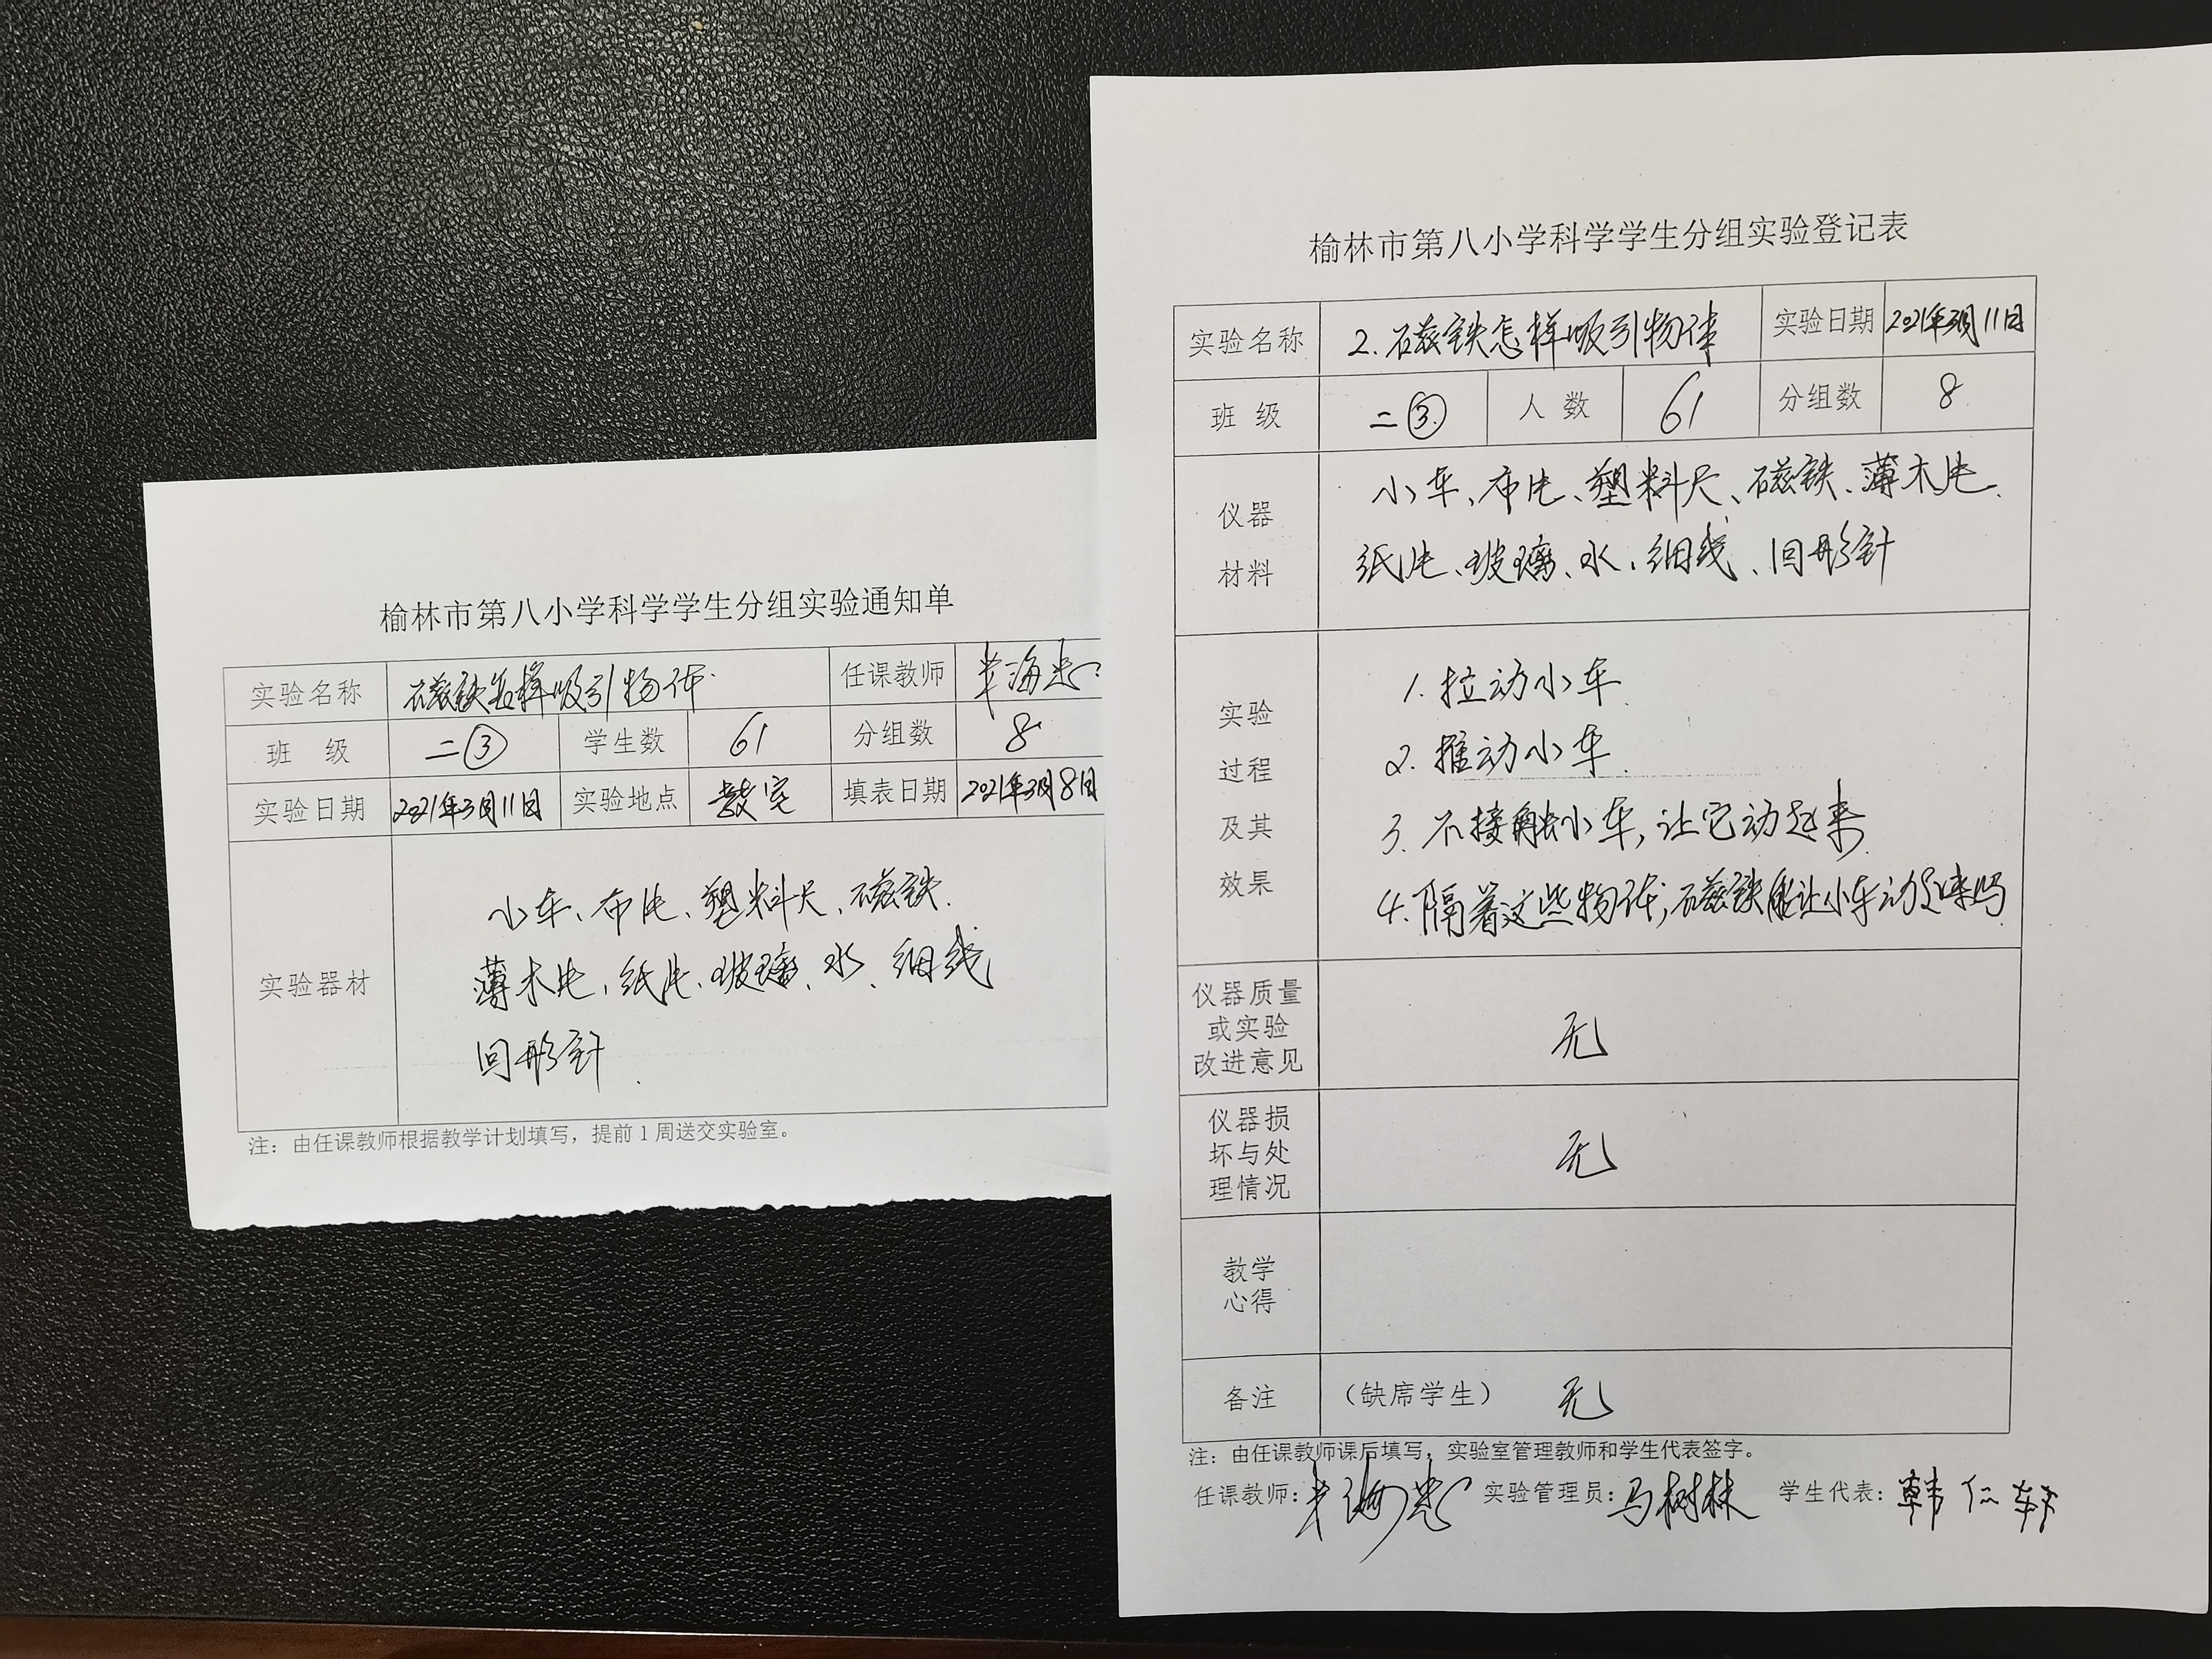 榆林市第八小学科学学生分组实验通知单
实验名称 磁铁怎样吸引物体 任课教师
班 级 二③ 学生数 61 分组数 8
实验日期 2021年3月11日 实验地点 教室 填表日期 2021年3月8日
小车、布片、塑料尺、磁铁、
实验器材 薄木片、纸片、玻璃、水、细线
回形针
注：由任课教师根据教学计划填写，提前1周送交实验室。
榆林市第八小学科学学生分组实验登记表
实验名称 2.磁铁怎样吸引物体 实验日期 2021年3月11日
班 级 二③ 人 数 61 分组数 8
仪器 小车、布片、塑料尺、磁铁、薄木片、
材料 纸片、玻璃、水、细线、回形针
实验 1.拉动小车
过程 2.推动小车
及其 3.不接触小车,让它动起来
效果 4.隔着这些物体,磁铁能让小车动起来吗
仪器质量
或实验 无
改进意见
仪器损
坏与处 无
理情况
教学
心得
备注 （缺席学生） 无
注：由任课教师课后填写，实验室管理教师和学生代表签字。
任课教师： 实验管理员：马树林 学生代表：韩仁轩